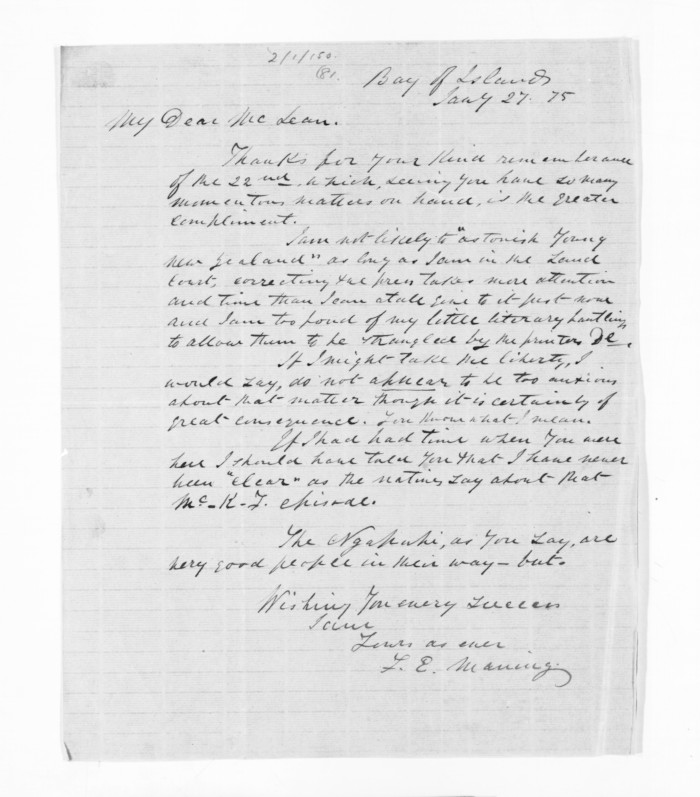 2/1/150.
(81.
Bay of Islands
Jany 27. 75
My Dear McLean.
Thanks for Your Kind remembrance
of the 22nd. which, seeing You have so many
momentous matters on hand, is the greater
compliment.
I am not likely to "astonish Young
new Zealand" as long as I am in the Land
Court, correcting the press takes more attention
and time than I can at all give to it just now
and I am too fond of my little literary bantlings
to allow them to be strangled by the printers De—.
If I might take the liberty, I
would say, do not appear to be too anxious
about that matter though it is certainly of
great consequence. You Know what I mean.
If I had had time when You were
here I should have told You that I have never
been "clear" as the natives say about that
Mc-K-J. episode.
The Ngapuhi, as You say, are
very good people in their way — but.
Wishing You every success
I am
Yours as ever
F. E. Maning.